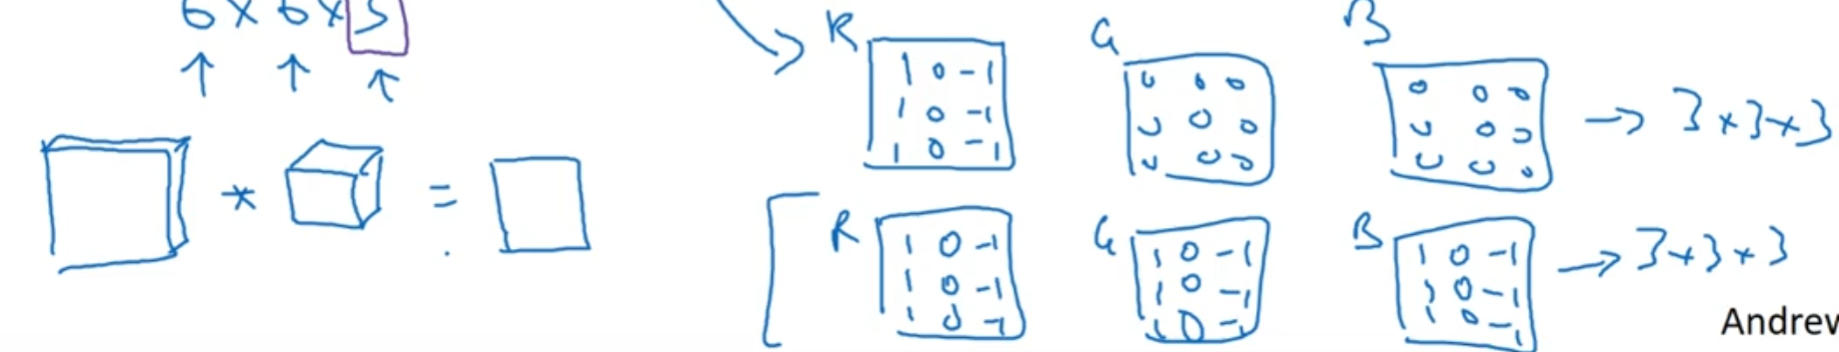 6 × 6 × 3
R
1 0 -1
1 0 -1
1 0 -1
G
0 0 0
0 0 0
0 0 0
B
0 0 0
0 0 0
0 0 0
→ 3×3×3
* =
R
1 0 -1
1 0 -1
1 0 -1
G
1 0 -1
1 0 -1
1 0 -1
B
1 0 -1
1 0 -1
1 0 -1
→ 3×3×3
Andrew